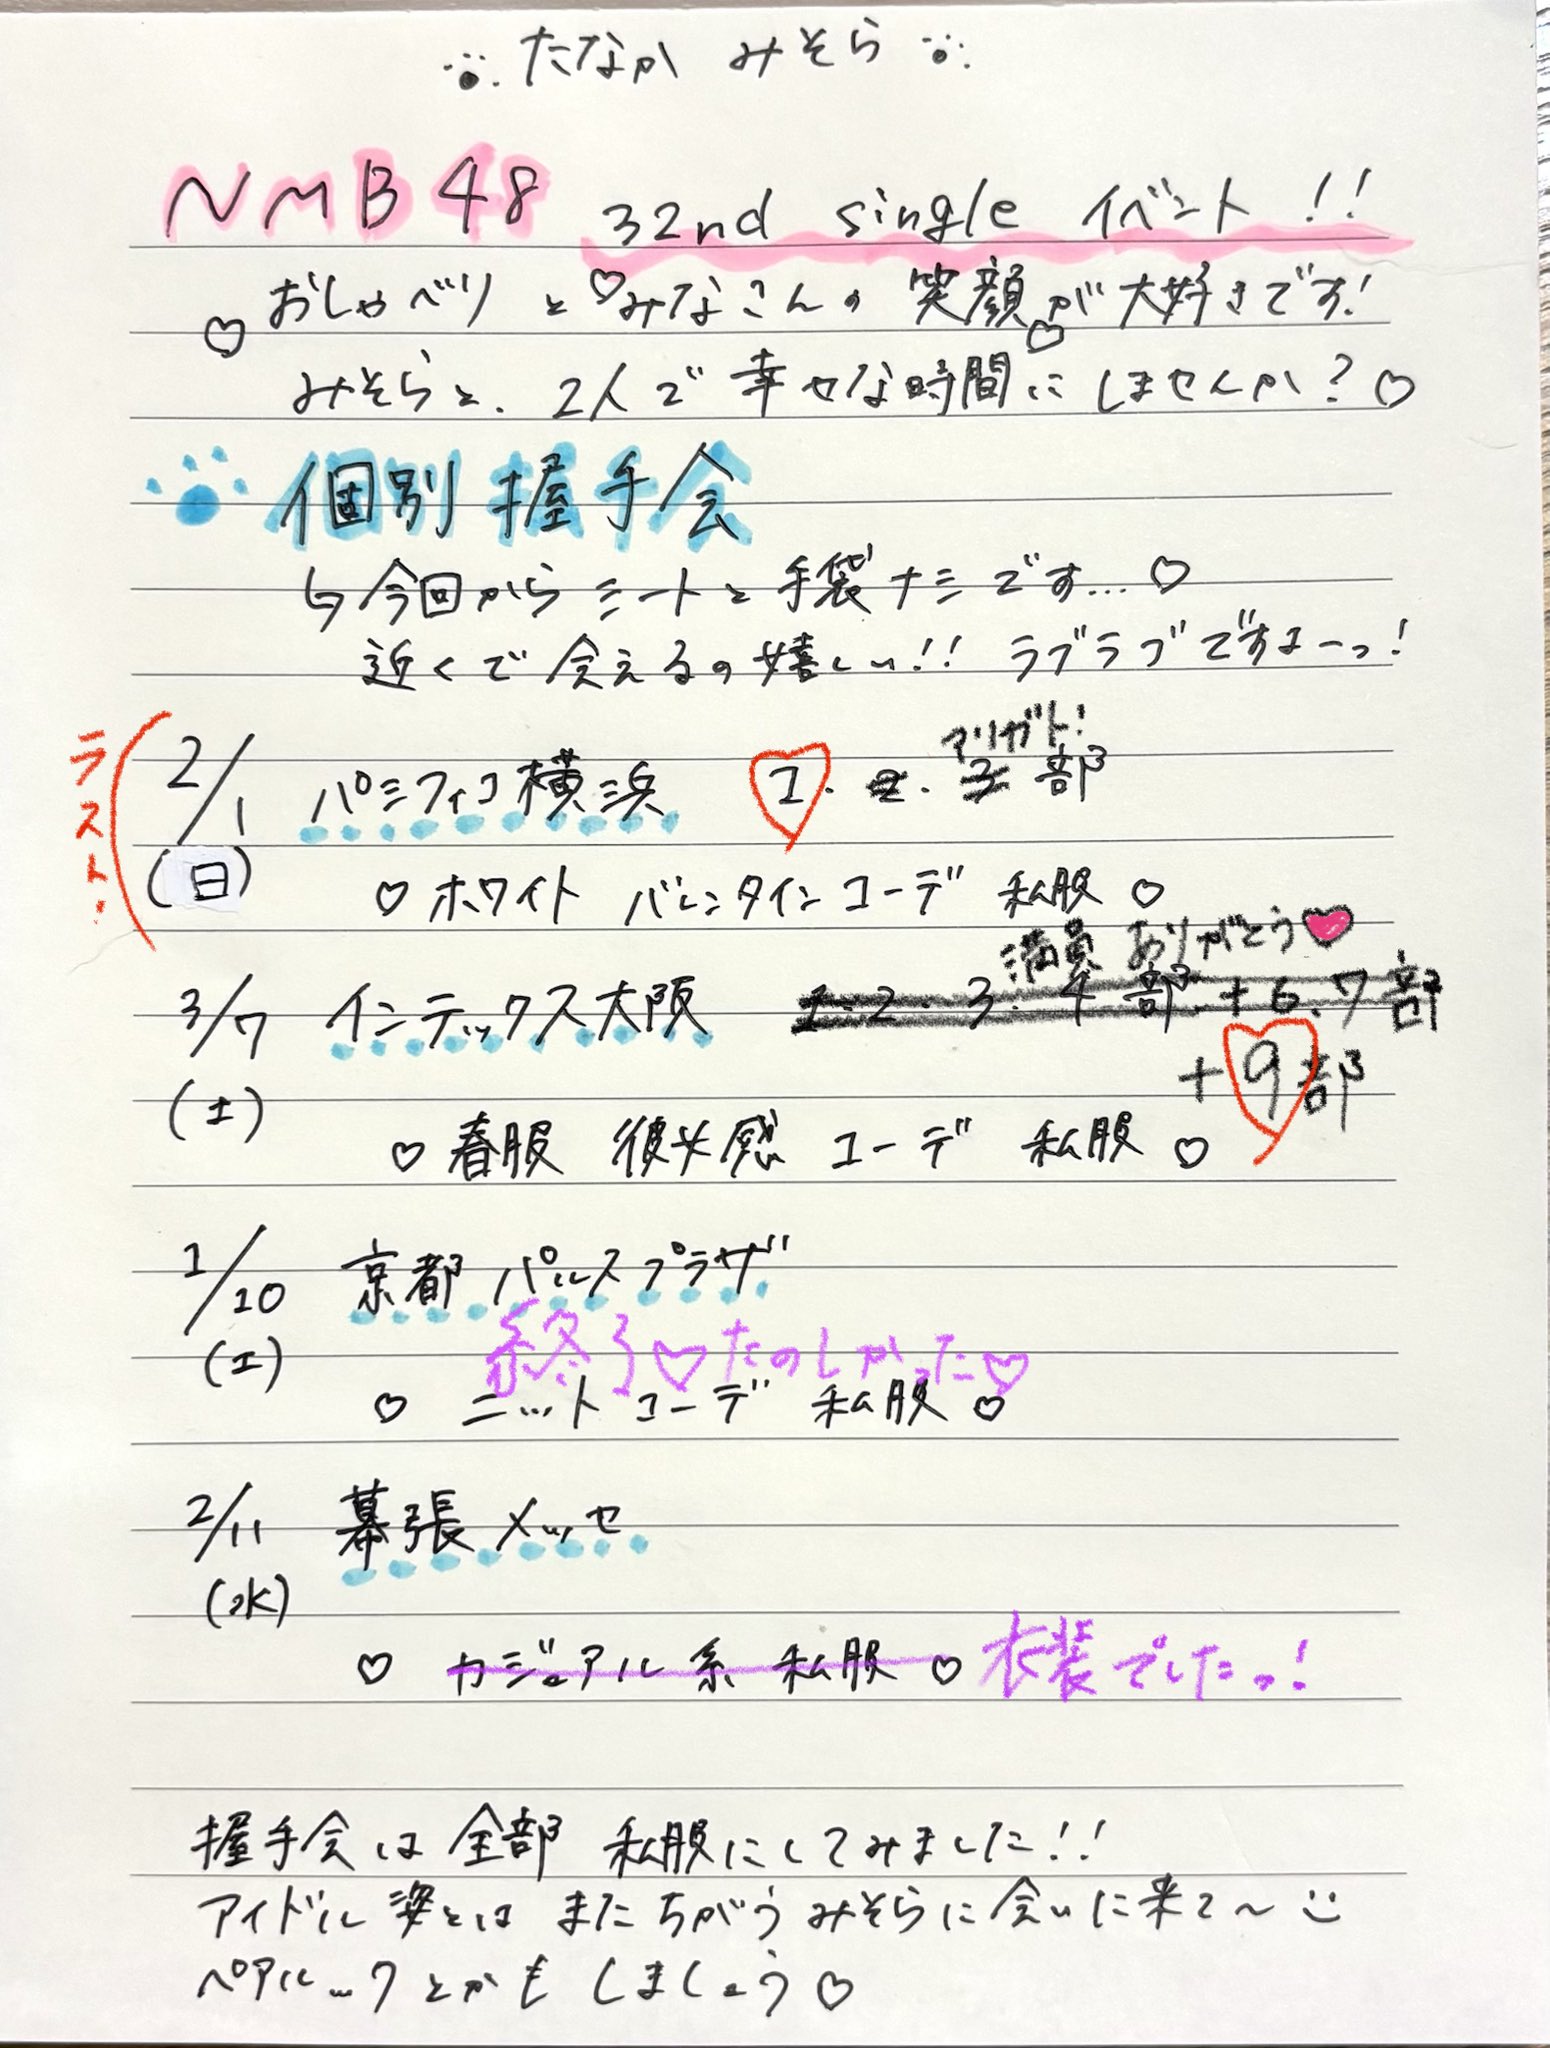 たなか みそら
NMB48 32nd single イベント!!
おしゃべりと♡みなさんの笑顔が大好きです!
♡みそらと、2人で幸せな時間にしませんか?♡
個別握手会
↳今回からシートと手袋ナシです…♡
近くで会えるの嬉しい!! ラブラブですよーっ!
ラスト!
アリガト!
2/1 パシフィコ横浜 1.2.3部
(日)
♡ホワイト バレンタインコーデ 私服♡
満員 ありがとう♥
3/7 インテックス大阪 1.2.3.4部+6.7部
+9部
(土)
♡春服 彼女感 コーデ 私服♡
1/10 京都 パルスプラザ
(土) 終了♡たのしかった♡
♡ニットコーデ 私服♡
2/11 幕張メッセ
(水)
♡カジュアル系 私服♡ 衣装でしたっ!
握手会は全部 私服にしてみました!!
アイドル姿とはまたちがうみそらに会いに来て〜
ペアルックとかもしましょう♡